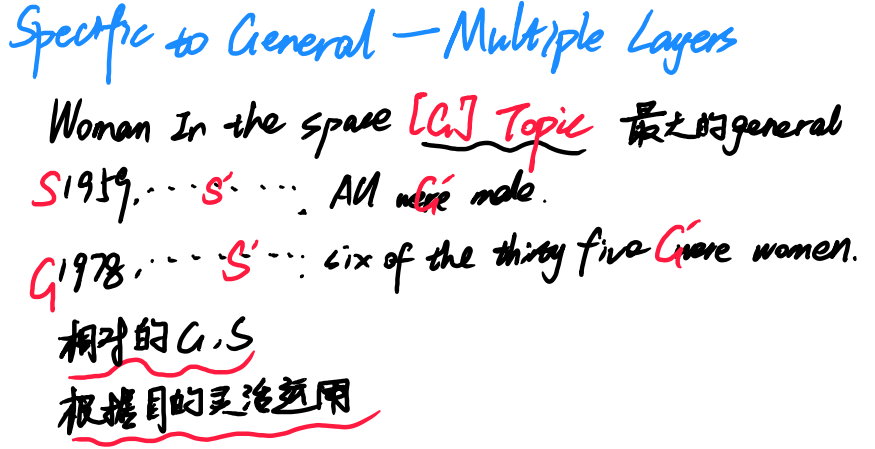 Specific to General — Multiple Layers
Woman In the space [G] Topic 最大的general
S 1959, ...... S' ...... All were G' male.
G 1978, ...... S' ...... six of the thirty five G' were women.
相对的G,S
根据目的灵活运用